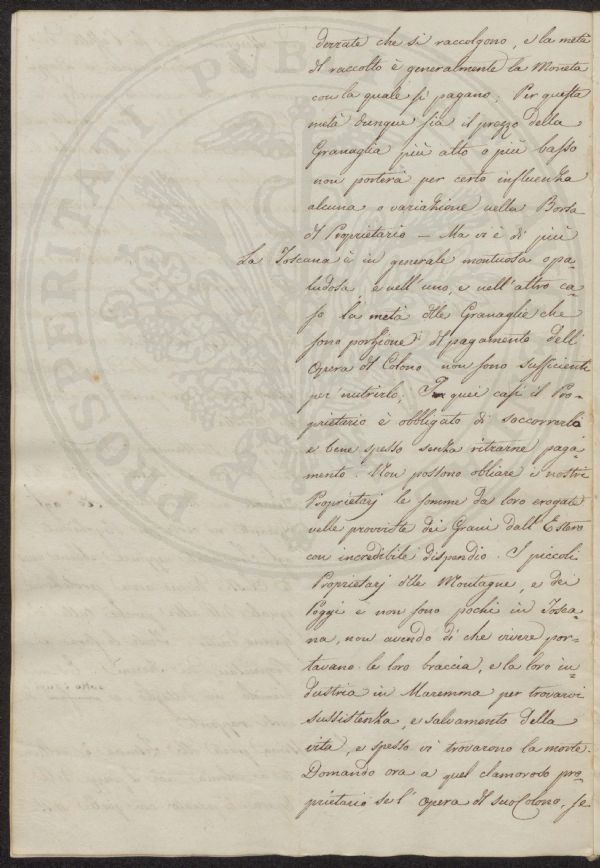 derrate che si raccolgono, e la metà
del raccolto è generalmente la Moneta
con la quale si pagano; Per questa
metà dunque sia il prezzo della
Granaglia più alto o più basso
non porterà per certo influenza
alcuna o variazione nella Borsa
del Proprietario — Ma vi è di più
La Toscana è in generale montuosa o pa-
ludosa, e nell'uno, e nell'altro ca-
so la metà delle Granaglie che
sono porzione del pagamento dell'
Opera del Colono non sono sufficiente
per nutrirlo; In quei casi il Pro-
prietario è obbligato di soccorrerlo
e bene spesso senza ritrarne paga-
mento. Non possono obliare i nostri
Proprietarj le somme da loro erogate
nelle provviste dei Grani dall'Estero
con incredibile dispendio. I piccoli
Proprietarj delle Montagne, e dei
Poggi e non sono pochi in Tosca-
na, non avendo di che vivere por-
tavano le loro braccia, e la loro in-
dustria in Maremma per trovarvi
sussistenza, e salvamento della
vita, e spesso vi trovarono la morte.
Domando ora a quel clamoroso pro-
prietario se l'opera del suo Colono, se
PROSPERITATI PUB